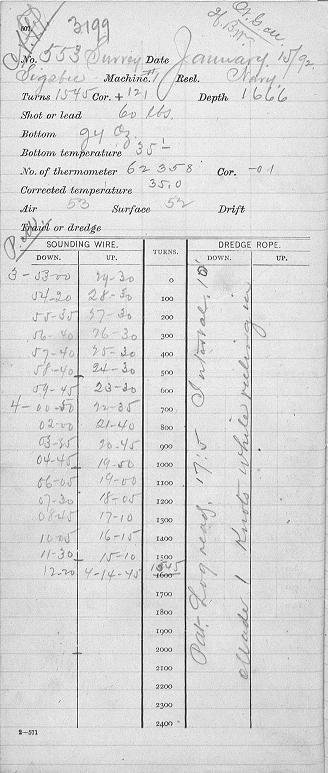 for 3199
No. 553 Survey Date January 15/92
Sigsbee Machine. Reel. Navy.
Turns 1545 Cor. + 121 Depth 1666
Shot or lead 60 lbs.
Bottom gy Oz.
Bottom temperature 35'
No. of thermometer 62358 Cor. -01
Corrected temperature 35.0
Air 53 Surface 52 Drift
Trawl or dredge
SOUNDING WIRE. TURNS. DREDGE ROPE.
DOWN. UP. DOWN. UP.
3-53-00 29-30 0
54-20 28-30 100
55-35 27-30 200
56-40 26-30 300
57-40 25-30 400
58-40 24-30 500
59-45 23-30 600
4-00-50 22-35 700
02-00 21-40 800
03-25 20-45 900
04-45 19-50 1000
06-05 19-00 1100
07-30 18-05 1200
08-45 17-10 1300
10-05 16-15 1400
11-30 15-10 1500
12-20 4-14-45 1545 1600
1700
1800
1900
2000
2100
2200
2300
2400
Pat Log read. 17.5 Interval 10'
Made 1 Knots while reeling in
2-571